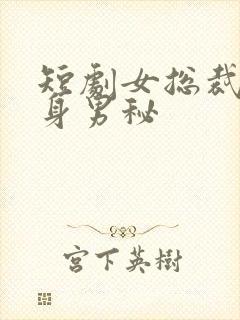 短劇女総裁
身男秘
宮下英樹